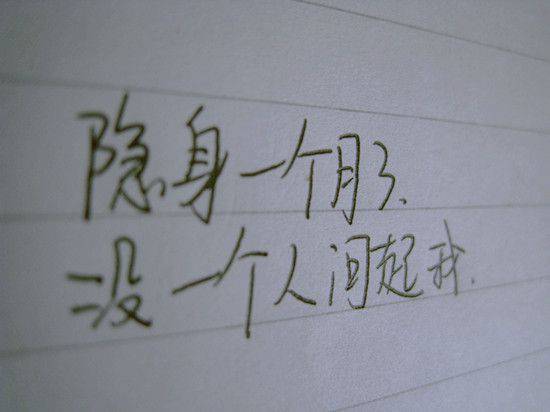 隐身一个月了、
没一个人问起我.